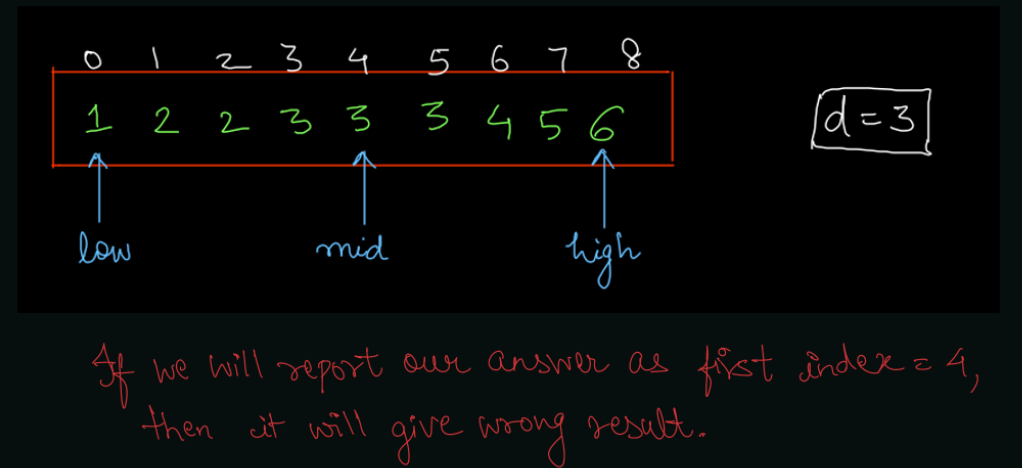 0 1 2 3 4 5 6 7 8
1 2 2 3 3 3 4 5 6
d = 3
low mid high
If we will report our answer as first index = 4,
then it will give wrong result.